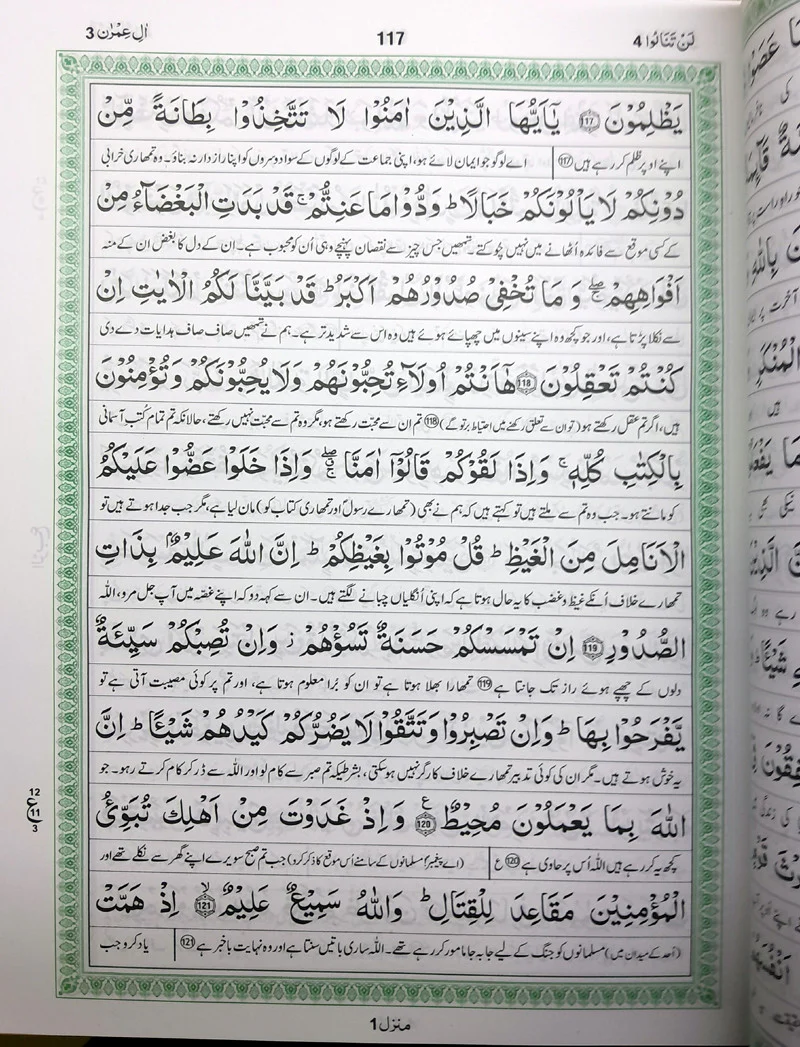 اٰلِ عِمْرٰن 3
117
لَنْ تَنَالُوا 4
يَظْلِمُوْنَ ﴿117﴾ يٰۤاَيُّهَا الَّذِيْنَ اٰمَنُوْا لَا تَتَّخِذُوْا بِطَانَةً مِّنْ
اپنے اوپر ظلم کر رہے ہیں ﴿117﴾ اے لوگو جو ایمان لائے ہو، اپنی جماعت کے لوگوں کے سوا دوسروں کو اپنا رازدار نہ بناؤ۔ وہ تمھاری خرابی
دُوْنِكُمْ لَا يَاْلُوْنَكُمْ خَبَالًا ؕ وَدُّوْا مَا عَنِتُّمْ ۚ قَدْ بَدَتِ الْبَغْضَآءُ مِنْ
کے کسی موقع سے فائدہ اُٹھانے میں نہیں چُوکتے۔ تمھیں جس چیز سے نقصان پہنچے وہی اُن کو محبوب ہے۔ اِن کے دل کا بغض ان کے منہ
اَفْوَاهِهِمْ ۖۚ وَ مَا تُخْفِيْ صُدُوْرُهُمْ اَكْبَرُ ؕ قَدْ بَيَّنَّا لَكُمُ الْاٰيٰتِ اِنْ
سے نکلا پڑتا ہے، اور جو کچھ وہ اپنے سینوں میں چھپائے ہوئے ہیں وہ اس سے شدید تر ہے۔ ہم نے تمھیں صاف صاف ہدایات دے دی
كُنْتُمْ تَعْقِلُوْنَ ﴿118﴾ هٰۤاَنْتُمْ اُولَآءِ تُحِبُّوْنَهُمْ وَلَا يُحِبُّوْنَكُمْ وَتُؤْمِنُوْنَ
ہیں، اگر تم عقل رکھتے ہو (تو ان سے تعلق رکھنے میں احتیاط برتو گے) ﴿118﴾ تم ان سے محبّت رکھتے ہو، مگر وہ تم سے محبّت نہیں رکھتے، حالانکہ تم تمام کُتبِ آسمانی
بِالْكِتٰبِ كُلِّهٖ ۚ وَاِذَا لَقُوْكُمْ قَالُوْۤا اٰمَنَّا ۖۚ وَاِذَا خَلَوْا عَضُّوْا عَلَيْكُمُ
کو مانتے ہو۔ جب وہ تم سے ملتے ہیں تو کہتے ہیں کہ ہم نے بھی (تمھارے رسول اور تمھاری کتاب کو) مان لیا ہے، مگر جب جدا ہوتے ہیں تو
الْاَنَامِلَ مِنَ الْغَيْظِ ؕ قُلْ مُوْتُوْا بِغَيْظِكُمْ ؕ اِنَّ اللّٰهَ عَلِيْمٌۢ بِذَاتِ
تمھارے خلاف اُنکے غیظ و غضب کا یہ حال ہوتا ہے کہ اپنی اُنگلیاں چبانے لگتے ہیں۔ ان سے کہہ دو کہ اپنے غصّہ میں آپ جل مرو، اللہ
الصُّدُوْرِ ﴿119﴾ اِنْ تَمْسَسْكُمْ حَسَنَةٌ تَسُؤْهُمْ ؗ وَاِنْ تُصِبْكُمْ سَيِّئَةٌ
دلوں کے چھپے ہوئے راز تک جانتا ہے ﴿119﴾ تمھارا بھلا ہوتا ہے تو ان کو بُرا معلوم ہوتا ہے، اور تم پر کوئی مصیبت آتی ہے تو
يَّفْرَحُوْا بِهَا ؕ وَاِنْ تَصْبِرُوْا وَتَتَّقُوْا لَا يَضُرُّكُمْ كَيْدُهُمْ شَيْـًٔا ؕ اِنَّ
یہ خوش ہوتے ہیں۔ مگر ان کی کوئی تدبیر تمھارے خلاف کارگر نہیں ہو سکتی، بشرطیکہ تم صبر سے کام لو اور اللہ سے ڈر کر کام کرتے رہو۔ جو
اللّٰهَ بِمَا يَعْمَلُوْنَ مُحِيْطٌ ﴿120﴾ ع وَاِذْ غَدَوْتَ مِنْ اَهْلِكَ تُبَوِّئُ
12
ع 11
3
کچھ یہ کر رہے ہیں اللہ اُس پر حاوی ہے ﴿120﴾ ع (اے پیغمبر! مسلمانوں کے سامنے اُس موقع کا ذکر کرو) جب تم صبح سویرے اپنے گھر سے نکلے تھے اور
الْمُؤْمِنِيْنَ مَقَاعِدَ لِلْقِتَالِ ؕ وَاللّٰهُ سَمِيْعٌ عَلِيْمٌ ﴿121﴾ ۙ اِذْ هَمَّتْ
(اُحد کے میدان میں) مسلمانوں کو جنگ کے لیے جا بہ جا مامور کر رہے تھے۔ اللہ ساری باتیں سنتا ہے اور وہ نہایت باخبر ہے ﴿121﴾ یاد کرو جب
منزل 1